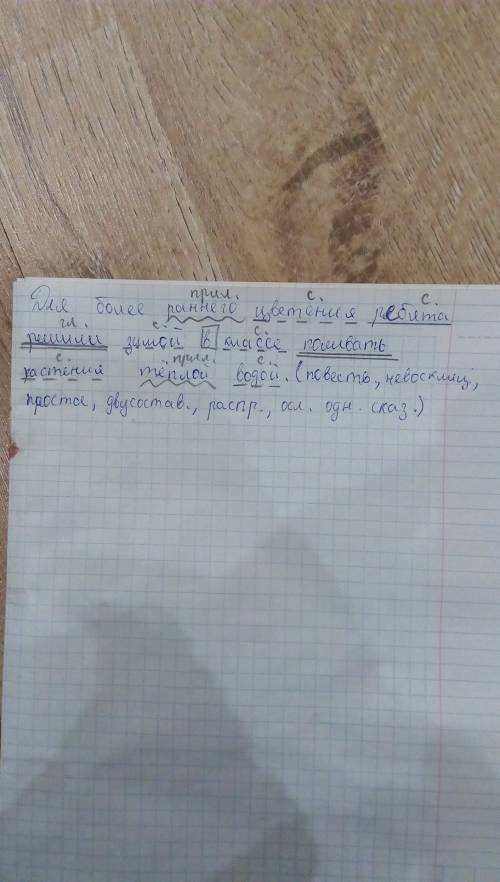 прил. с. с.
Для более раннего цветения ребята
гл. с. с.
решили зимой в классе поливать
с. прил. с.
растения тёплой водой. (повеств., невосклиц.,
проста, двусостав., распр., осл. одн. сказ.)